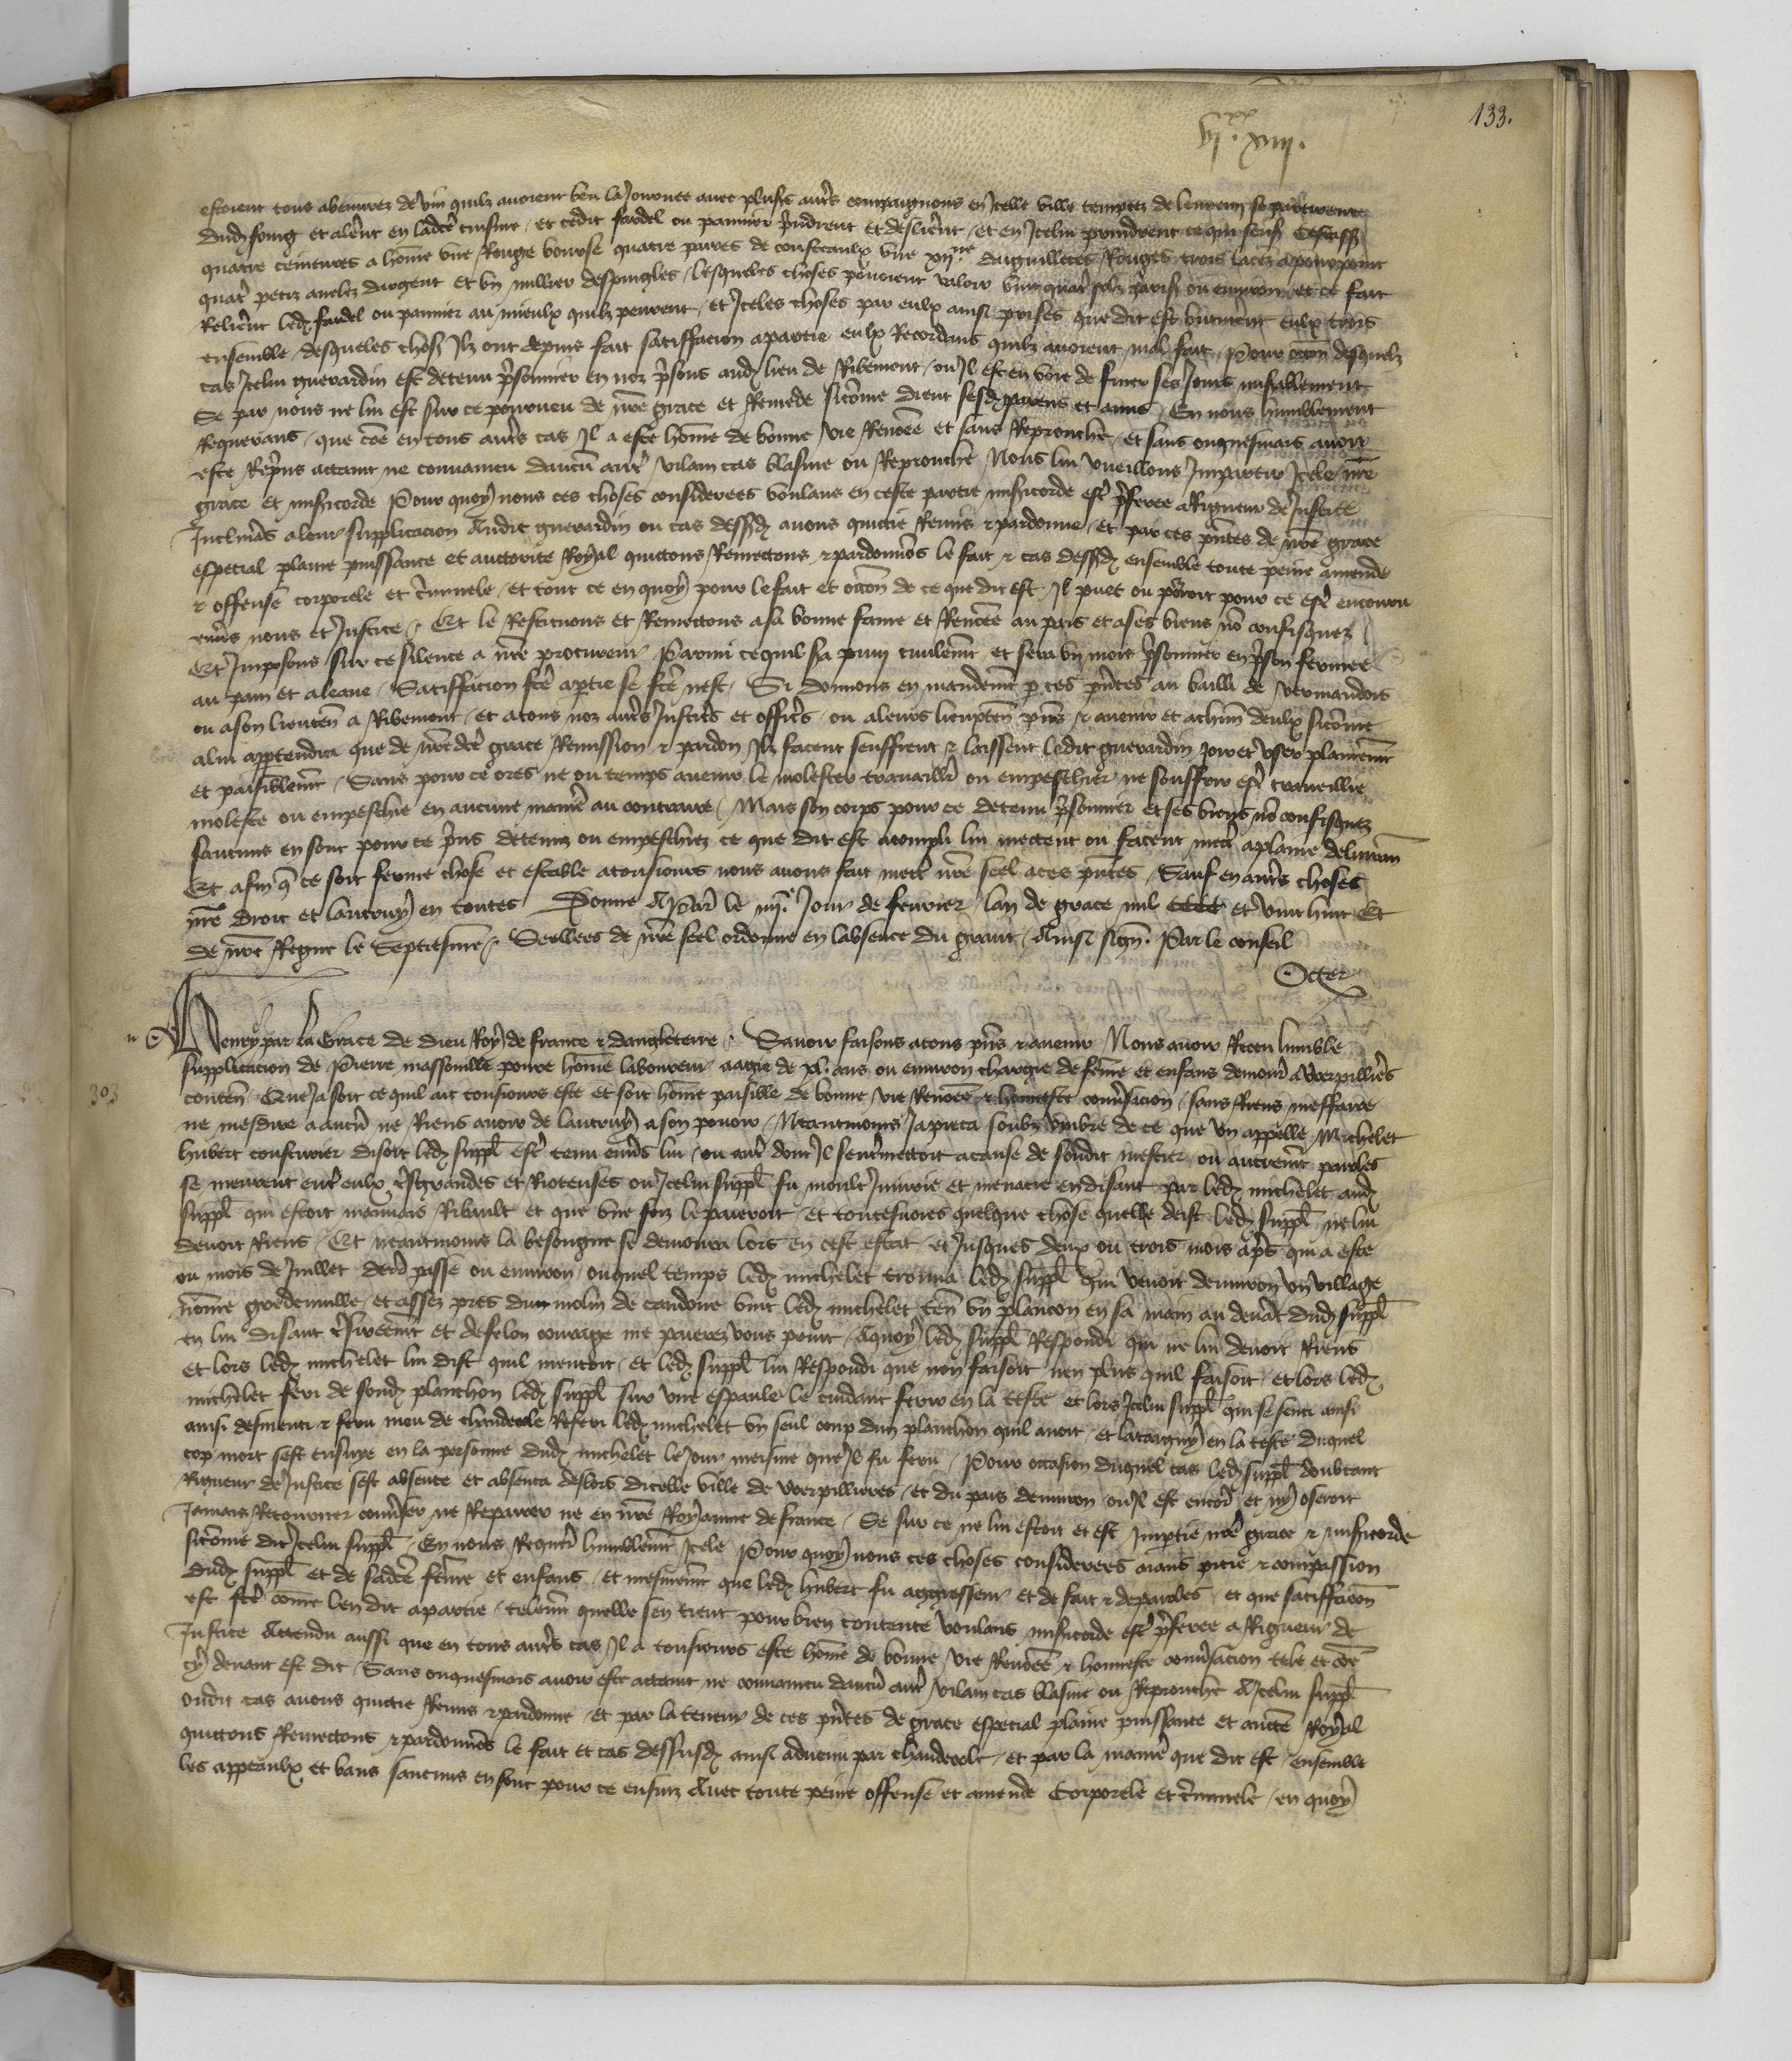 133.
vjxx. xiij.
estoient tous abeuvrez de vin quilz avoient beu la Journee avec plusrs autrs compaignons en Icelle ville temptez de lennemy se partirent
dudz fouig et alerent en ladce cuisine / et cedit fardel ou pannier prindrent et deslierent / et en Icelui prindrent ce qui sensz Cestassz
quatre ceintures a home une Rouge bourse quatre paires de cousteaulx une xijne daguilletes Rouges trois lacez a pourpoint
quatre petiz anelez dargent et un millier despingles / lesqueles choses povoient valoir vint quatre solz parisz ou environ / et ce fait
Relierent ledz fardel ou pannier au mieulx quilz peurent / et Iceles choses par eulx ainsi prises que dit est butinerent eulx trois
ensemble / desqueles chosz Ilz ont depuis fait satiffacion a partie eulx Recordans quilz avoient mal fait / Pour occon desquelz
cas Icelui guerardin est detenu prisonnier en noz prisons audz lieu de Ribemont / ou Il est en voie de finer ses Jours misablement
Se par nous ne lui est sur ce pourveu de nre grace et Remede sicome dient sesdz parens et amis / En nous humblement
Requerans / que coe en tous autrs cas Il a este home de bonne vie Renoee et sans Reprouche / et sans onquesmais avoir
este Reprins attaint ne convaincu daucun autre vilain cas blasme ou Reprouche Nous lui vueillons Impartir Icele nre
grace et misicorde Pour quoy nous ces choses considerees voulans en ceste partie misicorde estre preferee a Rigueur de Justice
Inclinas a leur supplicacion Audit guerardin ou cas dessdz avons quictie Remis et pardonne / et par ces pntes de nre grace
especial plaine puissance et auctorite Royal quictons Remettons et pardonnos le fait et cas dessdz ensemble toute peine amende
et offense corporele et criminele / et tout ce en quoy pour le fait et occon de ce que dit est Il puet ou porroit pour ce estre encouru
envers nous et Justice / Et le Restituons et Remettons a sa bonne fame et Renomee au pais et a ses biens no confisquez
Et Imposons sur ce silence a nre procureur Parmi ce quil sa puny civilemt et sera un mois prisonnier en prison fermee
au pain et a leaue / Satiffacion fce a partie se fce nest / Si donnons en mandemt p ces pntes au bailli de vermandois
ou a son lieuten a Ribemont / et a tous noz autrs Justicrs et officrs / ou a leurs lieuxten pns et avenir et a chun deulx sicome
a lui appartendra que de nre dce grace Remission et pardon Ilz facent seuffrent et laissent ledit guerardin joir et user plainemt
et paisiblemt / Sans pour ce ores ne ou temps avenir le molester travaillir ou empeschier ne souffrir estre traveillie
moleste ou empeschie en aucune maniere au contraire / Mais son corps pour ce detenu prisonnier et ses biens no confisquez
saucuns en sont pour ce prins detenuz ou empeschez ce que dit est acompli lui mectent ou facent mectre a plaine delivran
Et afin q ce soit ferme chose et estable a tousiours nous avons fait mectre nre seel a ces pntes / Sauf en autrs choses
nre droit et lautruy en toutes Donne A Paris le iiije Jour de fevrier lan de grace mil cccc et vint huit Et
de nre Regne le Septiesme / Seellees de nre seel ordonne en labsence du grant / Ainsi sign. Par le conseil
Ocier
Henry par la Grace de Dieu Roy de france et dangleterre / Savoir faisons a tous pns et avenir Nous avoir Receu humble
supplicacion de Pierre massonille povre home laboureur aagie de xl. ans ou environ chargie de feme et enfans demour a Voerpillieres
conten Que Ja soit ce quil ait tousiours este et soit home paisible de bonne vie Renoee et honneste conversacion / sans Riens meffaire
ne mesdire a aucun ne Riens avoir de lautruy a son povoir / Neantmoins Ja pieca soubz umbre de ce que un appelle Michelet
hubert cousturier disoit ledz suppl estre tenu envers lui / ou autre dont Il sentremettoit a cause de sondit mestier / ou autremt paroles
se meurent entre eulx tresgrandes et Rioteuses ou Icelui suppl fu moult Iniurie et menacie en disant par ledz michelet audz
suppl qui estoit mauvais Ribault et que une foiz le paieroit / et toutesvoies quelque chose quelle deist ledz suppl ne lui
devoit Riens / Et neantmoins la besongne se demoura lors en cest estat / et Jusques deux ou trois mois aprs qui a este
ou mois de Juillet derr passe ou environ / ouquel temps ledz michelet trouva ledz suppl qui venoit denviron un village
nome goedenville / et assez pres dun molin de candone vint ledz michelet ten un plancon en sa main au devat dudz suppl
en lui disant tresireemt et de felon courage me paierez vous point / A quoy ledz suppl Respondi qui ne lui devoit Riens
et lors ledz michelet lui dist quil mentoit / et ledz suppl lui Respondi que non faisoit nen plus quil faisoit / et lors ledz
michelet feri de sondz planchon ledz suppl sur une espaule le cuidant ferir en la teste et lors Icelui suppl qui se senti ainsi
ainsi desmenti et feru meu de chaudecole Referi ledz michelet un seul coup dun planchon quil avoit / et lataigny en la teste duquel
cop mort sest ensuye en la personne dudz michelet le Jour meisme que Il fu feru / Pour occasion duquel cas ledz suppl doubtant
Rigueur de Justice sest absente et absenta deslors dicelle ville de Voerpillieres / et du pais denviron ou Il est encore et ny oseroit
Jamais Retourner converser ne Reparer ne en nre Royaume de france / Se sur ce ne lui estoit et est Impartie nre grace et misicorde
sicome dit Icelui suppl / En nous Requerat humblemt Icele Pour quoy nous ces choses considerees aians pitie et compassion
dudz suppl et de sadce feme et enfans / et mesmemt que ledz hubert fu aggresseur et de fait et de paroles / et que satiffacion
est fce come len dit a partie / telemt quelle sen tient pour bien contente Voulans misicorde estre preferee a Rigueur de
Justice Attendu aussi que en tous autrs cas Il a tousiours este home de bonne vie Renoee et honneste conversacion tele et coe
cy devant est dit / Sans onquesmais avoir este attaint ne convaincu daucun autre vilain cas blasme ou Reprouche A Icelui suppl
oudit cas avons quictie Remis et pardonne / et par la teneur de ces pntes de grace especial plaine puissance et aucte Royal
quictons Remettons et pardonnos le fait et cas dessusdz ainsi advenu par chaudecole / et par la maniere que dit est / ensemble
les appeaulx et bans saucuns en sont pour ce ensuiz Avec toute peine offense et amende Corporele et criminele / en quoy
303